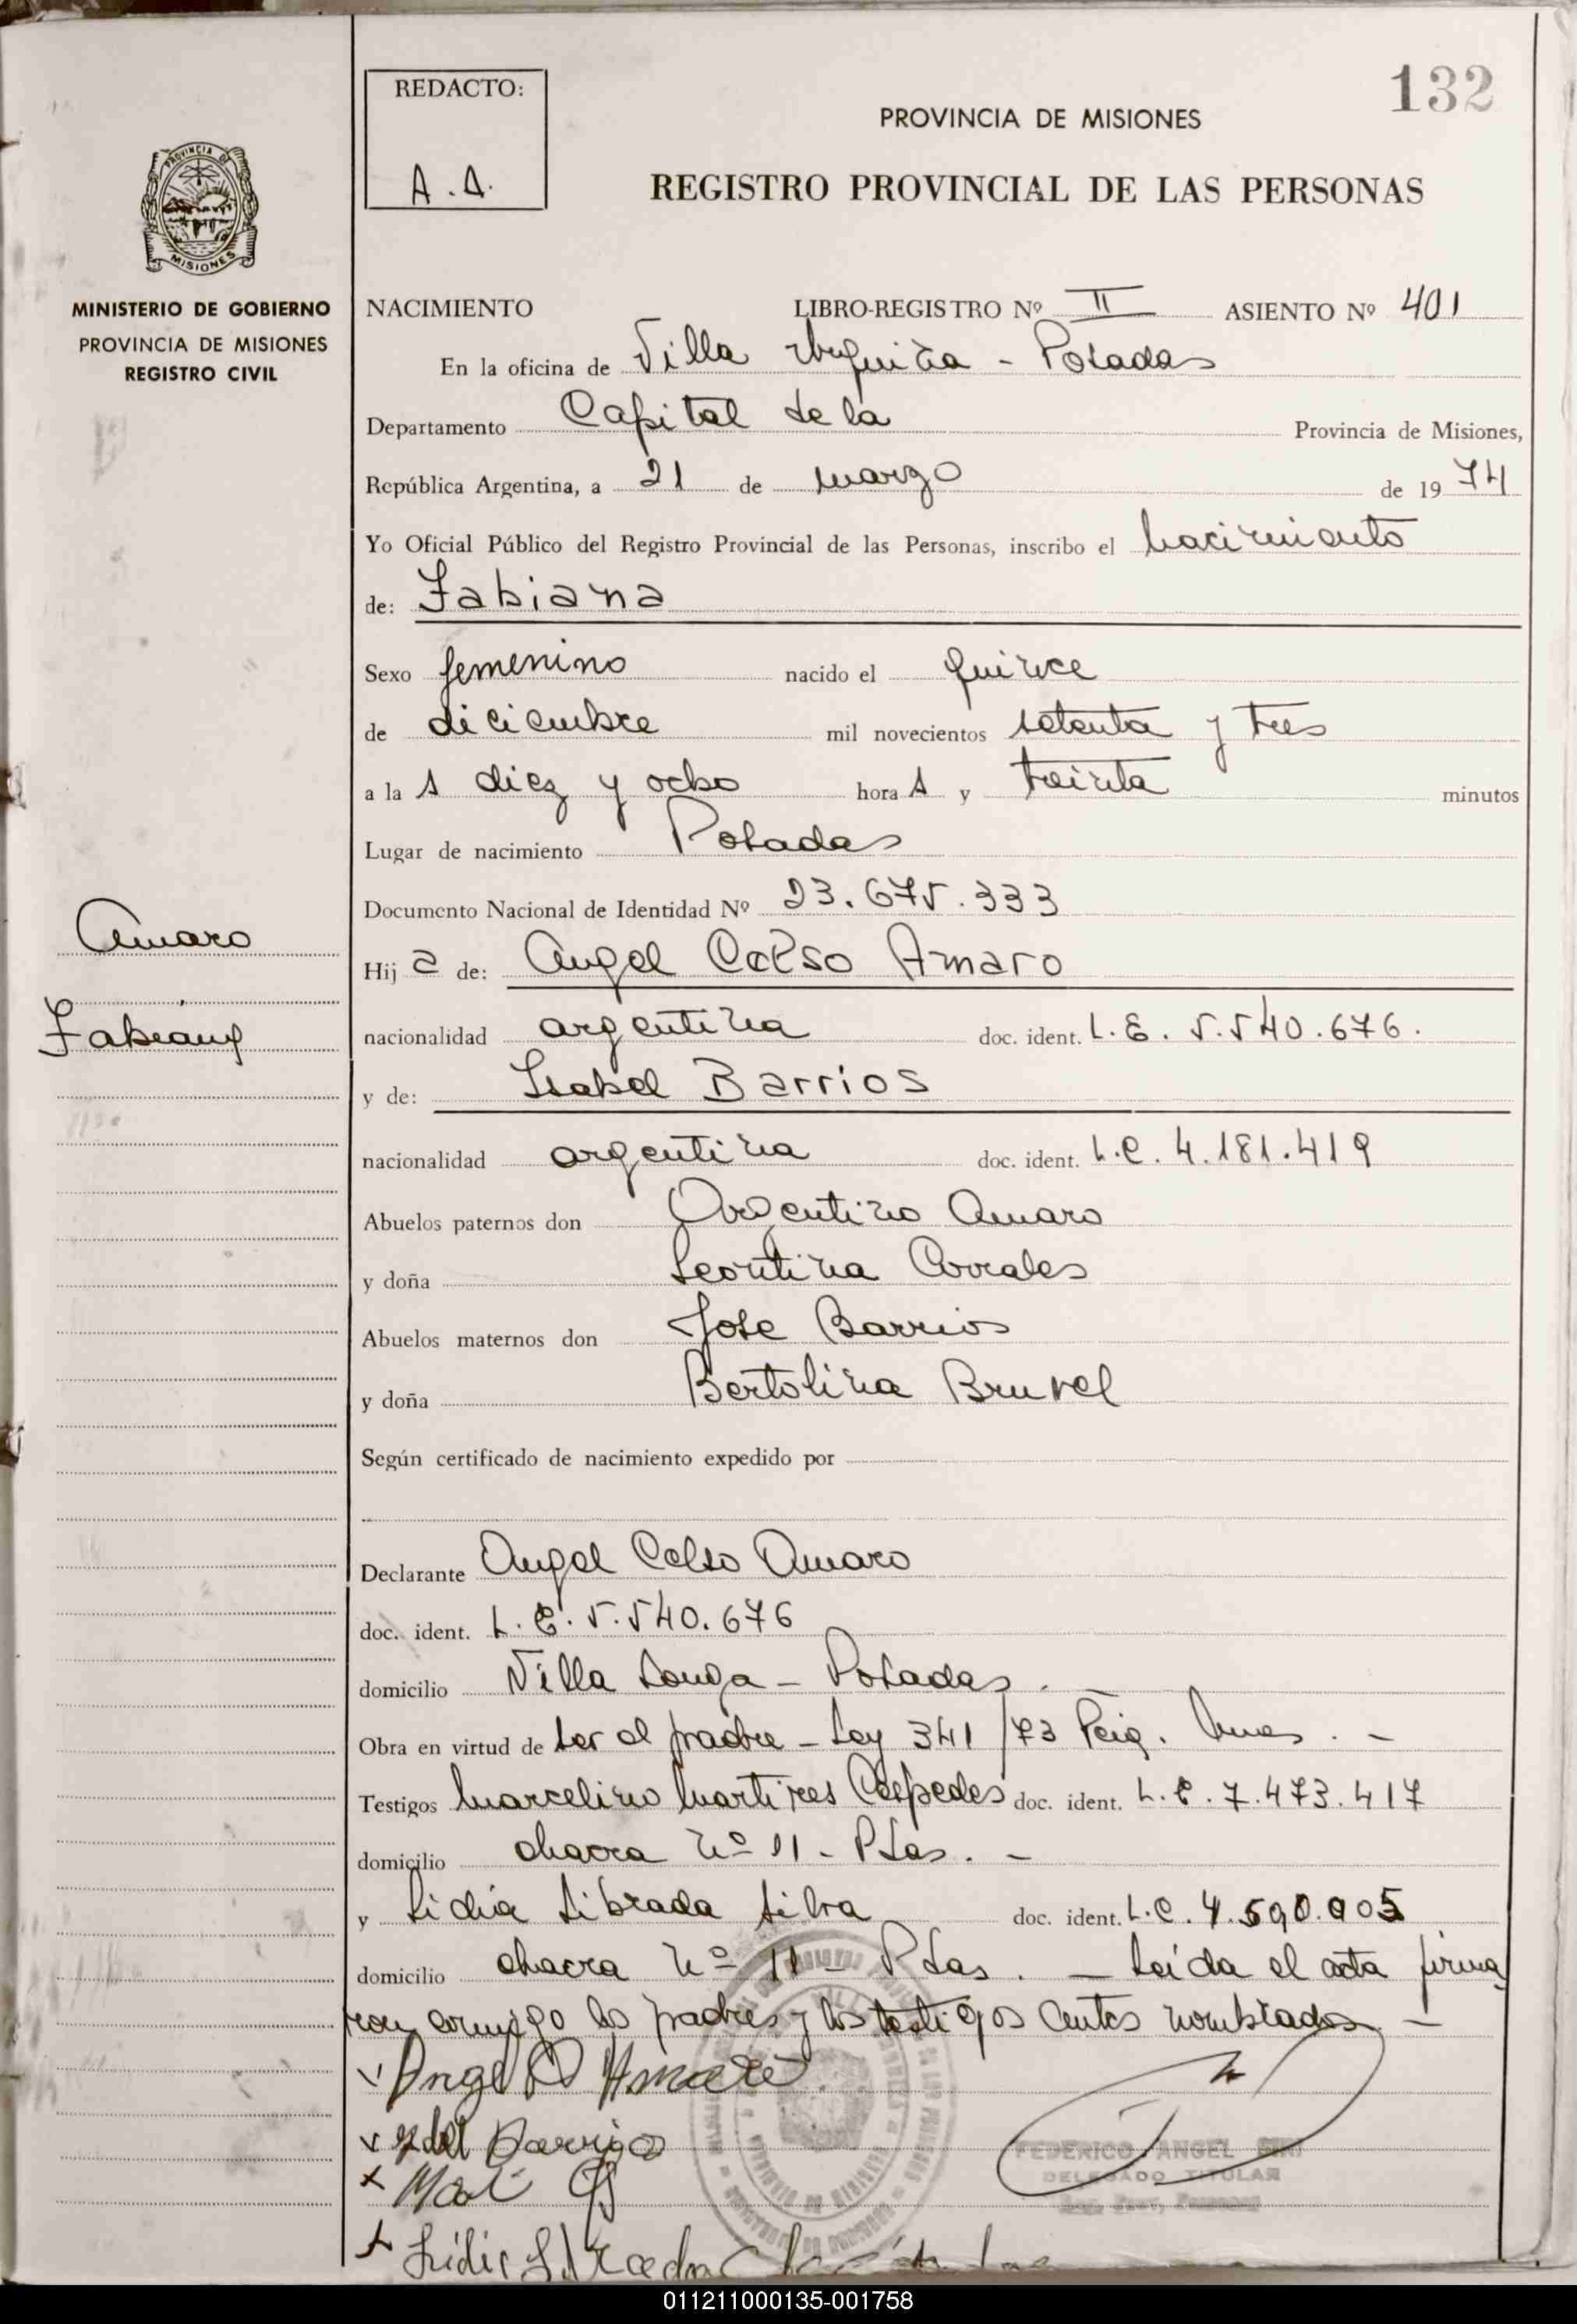 132
REDACTO:
A.A.
PROVINCIA DE MISIONES
REGISTRO PROVINCIAL DE LAS PERSONAS
PROVINCIA DE
MISIONES
MINISTERIO DE GOBIERNO
PROVINCIA DE MISIONES
REGISTRO CIVIL
NACIMIENTO LIBRO-REGISTRO Nº II ASIENTO Nº 401
En la oficina de Villa Urquiza - Posadas
Departamento Capital de la Provincia de Misiones,
República Argentina, a 21 de marzo de 1974
Yo Oficial Público del Registro Provincial de las Personas, inscribo el nacimiento
de: Fabiana
Sexo femenino nacido el quince
de diciembre mil novecientos setenta y tres
a las diez y ocho horas y treinta minutos
Lugar de nacimiento Posadas
Documento Nacional de Identidad Nº 23.675.333
Amaro
Fabiana
Hija de: Angel Celso Amaro
nacionalidad argentina doc. ident. L.E. 5.540.676.
y de: Isabel Barrios
nacionalidad argentina doc. ident. L.C. 4.181.419
Abuelos paternos don Argentino Amaro
y doña Leontina Corrales
Abuelos maternos don Jose Barrios
y doña Bertolina Brunel
Según certificado de nacimiento expedido por
Declarante Angel Celso Amaro
doc. ident. L.E. 5.540.676
domicilio Villa Longa - Posadas.
Obra en virtud de ser el padre - Ley 341/73
Testigos Marcelino Martires Cespedes doc. ident. L.E. 7.473.417
domicilio chacra nº 11 - Pdas. -
y Lidia Librada Silva doc. ident. L.C. 4.590.005
domicilio chacra nº 11 - Pdas. - Leida el acta firma
ron conmigo los padres y los testigos antes nombrados -
Angel C Amaro
Barrios
FEDERICO ANGEL
DELEGADO TITULAR
011211000135-001758